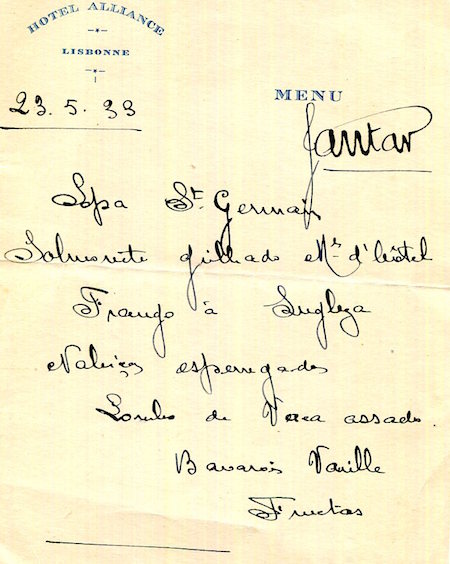 HOTEL ALLIANCE
LISBONNE
23.5.33
MENU
Jantar
Sopa St Germain
Salmonete grilhado Me d'hôtel
Frango à Ingleza
Nabiças esperregadas
Lombo de Vaca assado
Bavarois Vanille
Fructas